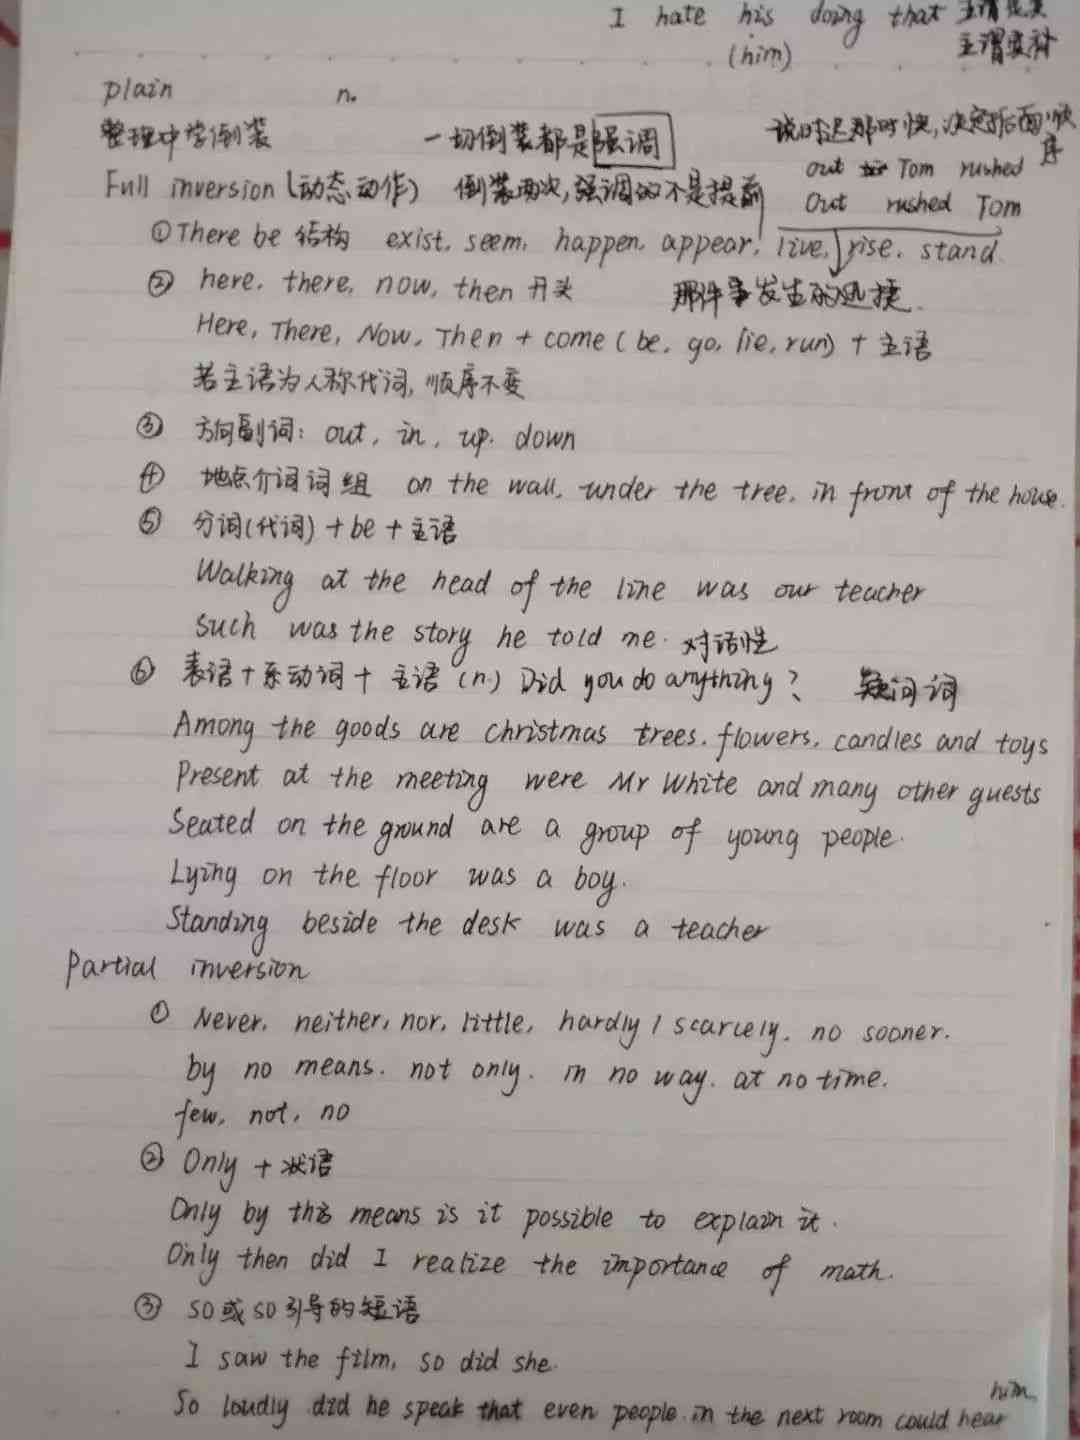 I hate his doing that
(him)
plain n.
整理中学倒装 一切倒装都是强调 说时迟那时快,决定后面顺序
out Tom rushed
Full inversion (动态动作) 倒装两次,强调的不是提前
Out rushed Tom
①There be 结构 exist. seem. happen. appear. live. rise. stand.
② here. there. now. then 开头 那件事发生的迅捷.
Here, There, Now, Then + come ( be, go, lie, run) + 主语
若主语为人称代词, 顺序不变
③ 方向副词: out, in, up. down
④ 地点介词词组 on the wall, under the tree. in front of the house.
⑤ 分词(代词) + be + 主语
Walking at the head of the line was our teacher
such was the story he told me. 对话性
⑥ 表语+系动词+ 主语 (n.) Did you do anything? 疑问词
Among the goods are christmas trees. flowers, candles and toys
Present at the meeting were Mr White and many other guests
Seated on the ground are a group of young people.
Lying on the floor was a boy.
Standing beside the desk was a teacher
Partial inversion
① Never. neither, nor. little, hardly / scarcely. no sooner.
by no means. not only. in no way. at no time.
few, not, no
② Only + 状语
Only by this means is it possible to explain it.
Only then did I realize the importance of math.
③ so或so引导的短语
I saw the film, so did she.
So loudly did he speak that even people in the next room could hear him.